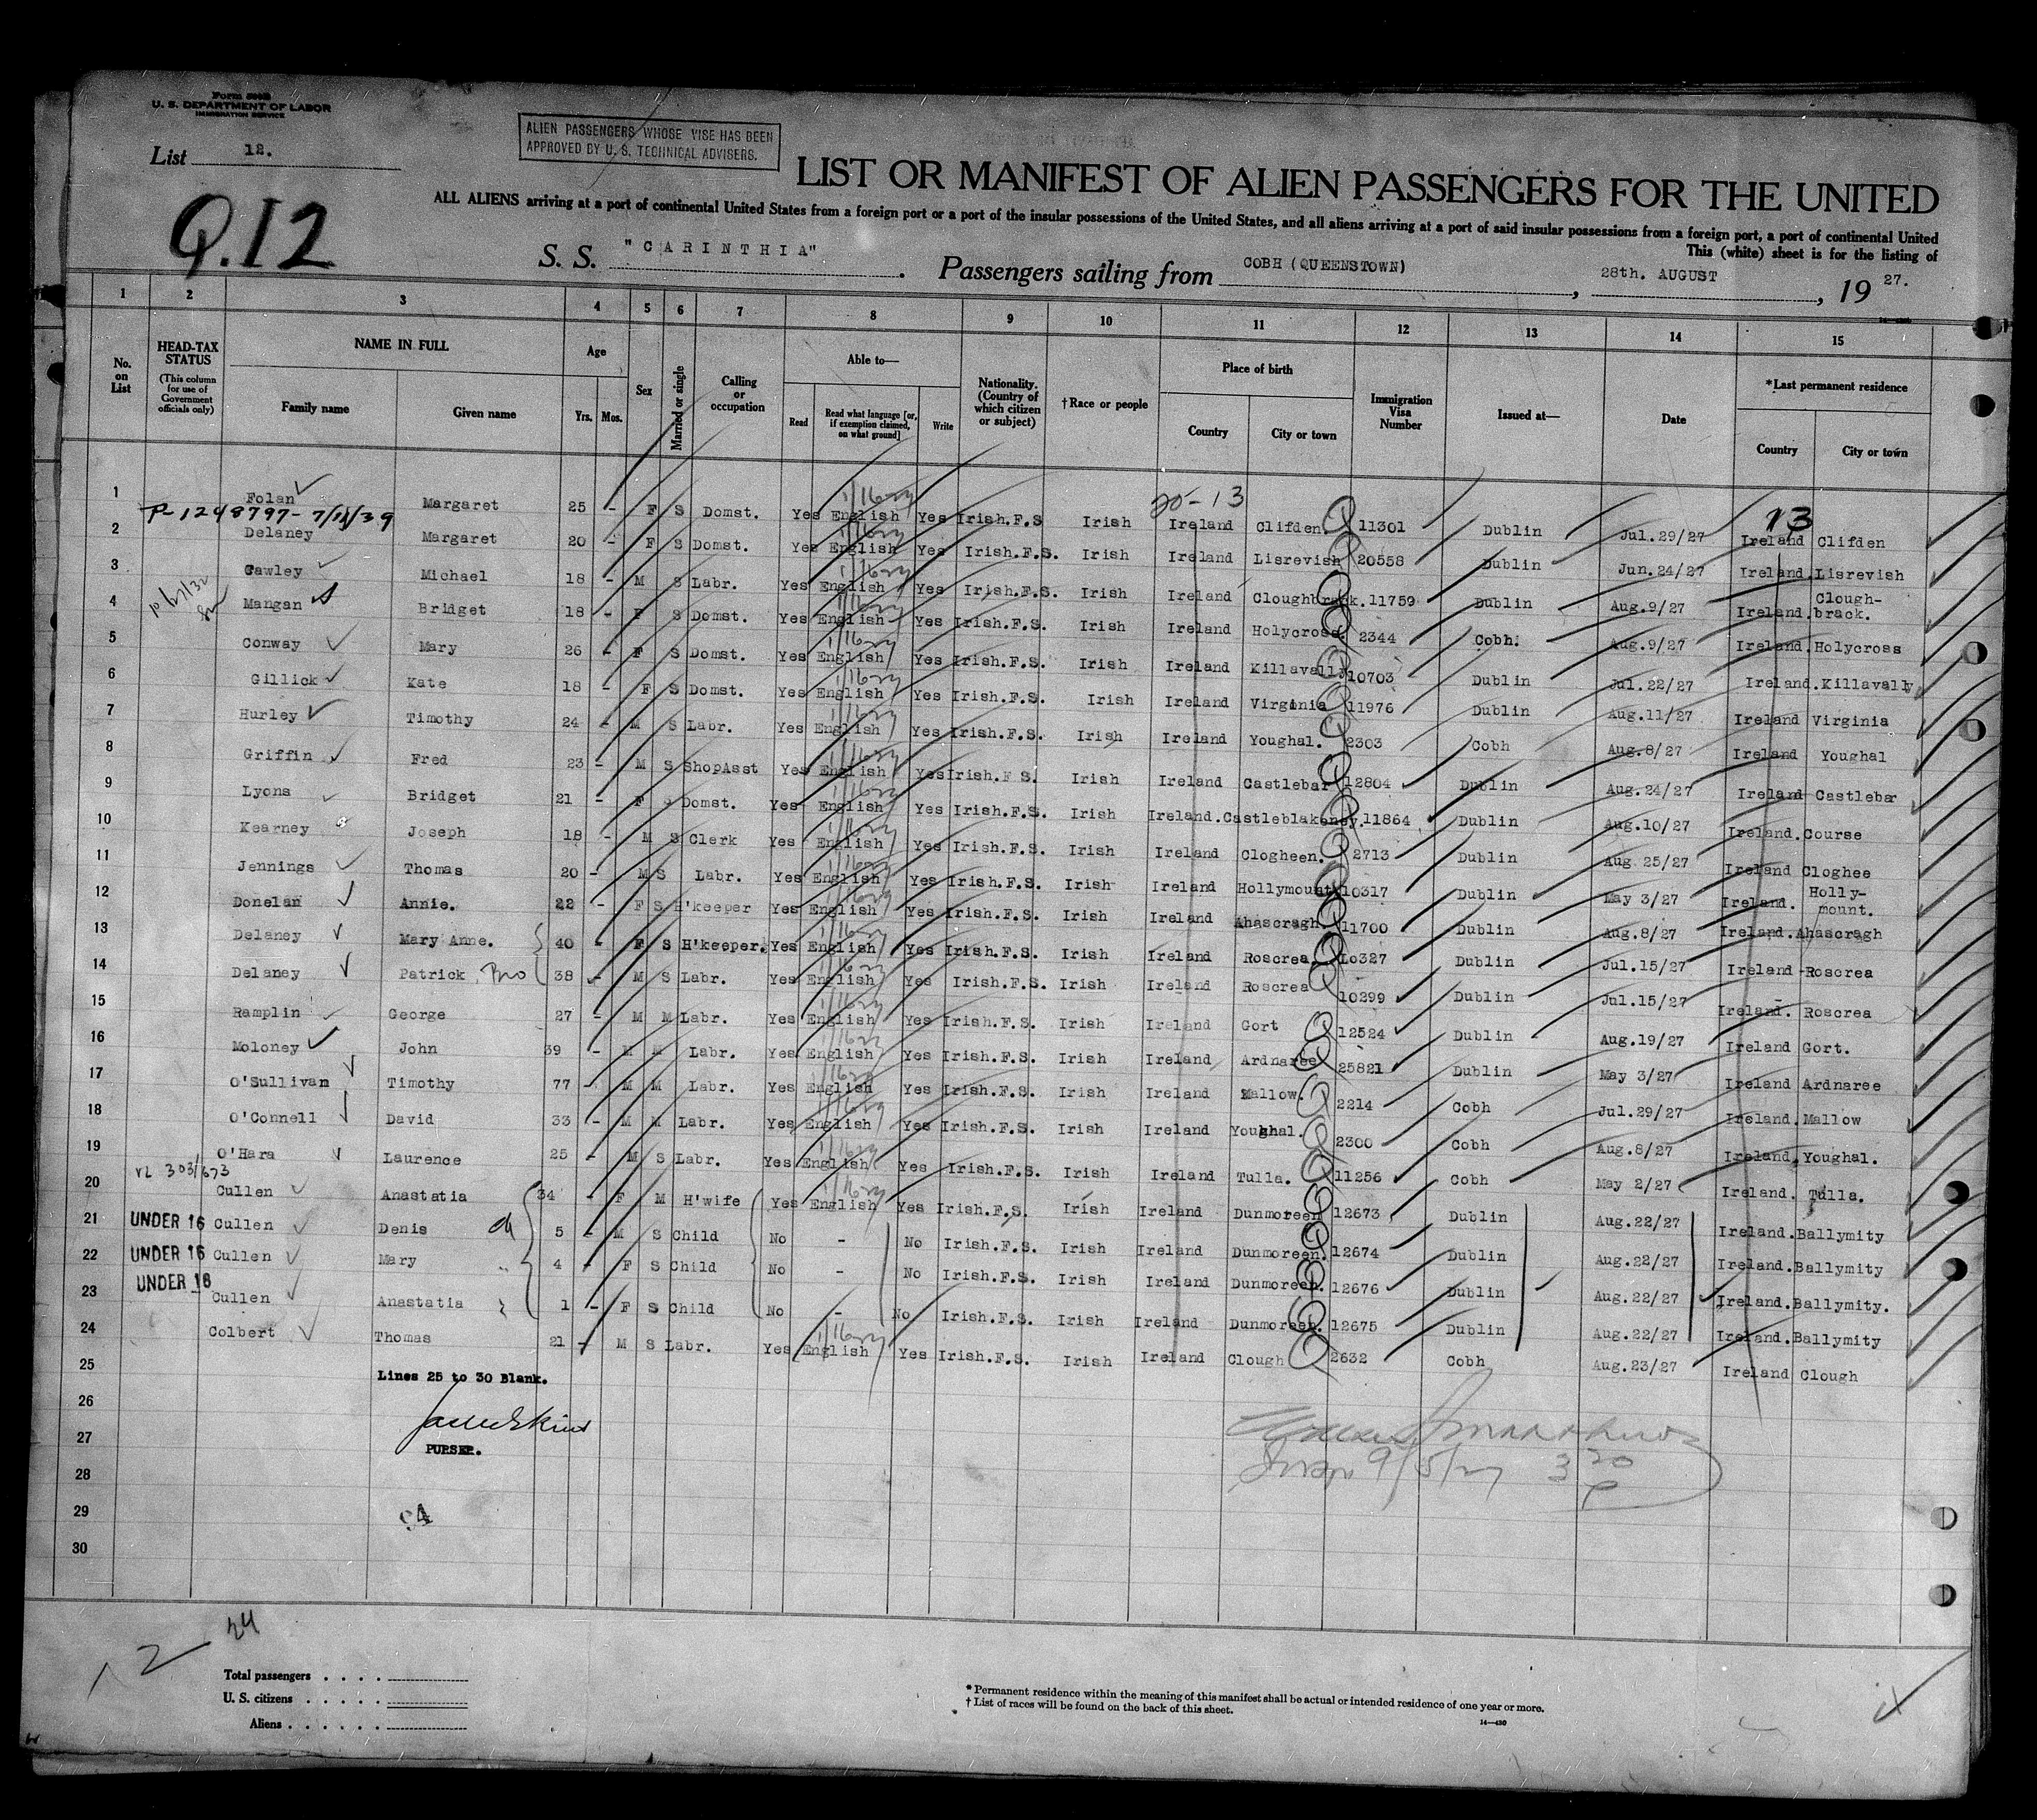 Form 500B
U. S. DEPARTMENT OF LABOR
IMMIGRATION SERVICE
ALIEN PASSENGERS WHOSE VISE HAS BEEN
APPROVED BY U. S. TECHNICAL ADVISERS.
List 12.
LIST OR MANIFEST OF ALIEN PASSENGERS FOR THE UNITED
Q.12
ALL ALIENS arriving at a port of continental United States from a foreign port or a port of the insular possessions of the United States, and all aliens arriving at a port of said insular possessions from a foreign port, a port of continental United
This (white) sheet is for the listing of
S. S. "CARINTHIA". Passengers sailing from COBH (QUEENSTOWN), 28th. AUGUST, 19 27.
1 2 3 4 5 6 7 8 9 10 11 12 13 14 15
No. on List
HEAD-TAX STATUS
(This column for use of Government officials only)
NAME IN FULL
Family name Given name
Age
Yrs. Mos.
Sex
Married or single
Calling or occupation
Able to—
Read Read what language [or, if exemption claimed, on what ground] Write
Nationality. (Country of which citizen or subject)
†Race or people
Place of birth
Country City or town
Immigration Visa Number
Issued at—
Date
*Last permanent residence
Country City or town
20-13
13
1 Folan Margaret 25 - F S Domst. Yes English Yes Irish.F.S Irish Ireland Clifden. 11301 Dublin Jul.29/27 Ireland Clifden
2 Delaney Margaret 20 - F S Domst. Yes English Yes Irish.F.S. Irish Ireland Lisrevish 20558 Dublin Jun.24/27 Ireland.Lisrevish
3 Gawley Michael 18 - M S Labr. Yes English Yes Irish.F.S. Irish Ireland Cloughbrack. 11759 Dublin Aug.9/27 Ireland. Clough-brack.
4 Mangan Bridget 18 - F S Domst. Yes English Yes Irish.F.S. Irish Ireland Holycross. 2344 Cobh. Aug.9/27 Ireland.Holycross
5 Conway Mary 26 - F S Domst. Yes English Yes Irish.F.S. Irish Ireland Killavally 10703 Dublin Jul.22/27 Ireland.Killavally
6 Gillick Kate 18 - F S Domst. Yes English Yes Irish.F.S. Irish Ireland Virginia 11976 Dublin Aug.11/27 Ireland Virginia
7 Hurley Timothy 24 - M S Labr. Yes English Yes Irish.F.S. Irish Ireland Youghal. 2303 Cobh Aug.8/27 Ireland Youghal
8 Griffin Fred 23 - M S ShopAsst Yes English Yes Irish.F S. Irish Ireland Castlebar 12804 Dublin Aug.24/27 Ireland Castlebar
9 Lyons Bridget 21 - F S Domst. Yes English Yes Irish.F.S. Irish Ireland.Castleblakeney. 11864 Dublin Aug.10/27 Ireland.Course
10 Kearney Joseph 18 - M S Clerk Yes English Yes Irish.F.S. Irish Ireland Clogheen. 2713 Dublin Aug 25/27 Ireland Cloghee
11 Jennings Thomas 20 - M S Labr. Yes English Yes Irish.F.S. Irish Ireland Hollymount 10317 Dublin May 3/27 Ireland. Holly-mount.
12 Donelan Annie. 22 - F S H'keeper Yes English Yes Irish.F.S. Irish Ireland Ahascragh. 11700 Dublin Aug.8/27 Ireland.Ahascragh
13 Delaney Mary Anne. 40 - F S H'keeper. Yes English Yes Irish.F.S. Irish Ireland Roscrea. 10327 Dublin Jul.15/27 Ireland Roscrea
14 Delaney Patrick Bro 38 - M S Labr. Yes English Yes Irish.F.S. Irish Ireland Roscrea 10299 Dublin Jul.15/27 Ireland. Roscrea
15 Ramplin George 27 - M M Labr. Yes English Yes Irish.F.S. Irish Ireland Gort 12524 Dublin Aug.19/27 Ireland Gort.
16 Moloney John 39 - M M Labr. Yes English Yes Irish.F.S. Irish Ireland Ardnaree 25821 Dublin May 3/27 Ireland Ardnaree
17 O'Sullivan Timothy 77 - M M Labr. Yes English Yes Irish.F.S. Irish Ireland Mallow. 2214 Cobh Jul.29/27 Ireland.Mallow
18 O'Connell David 33 - M M Labr. Yes English Yes Irish.F.S. Irish Ireland Youghal. 2300 Cobh Aug.8/27 Ireland.Youghal.
19 O'Hara Laurence 25 - M S Labr. Yes English Yes Irish.F.S. Irish Ireland Tulla. 11256 Cobh May 2/27 Ireland. Tulla.
20 Cullen Anastatia 34 - F M H'wife Yes English Yes Irish.F.S. Irish Ireland Dunmoreen 12673 Dublin Aug.22/27 Ireland.Ballymity
21 UNDER 16 Cullen Denis 5 - M S Child No - No Irish.F.S. Irish Ireland Dunmoreen. 12674 Dublin Aug.22/27 Ireland.Ballymity
22 UNDER 16 Cullen Mary 4 - F S Child No - No Irish.F.S. Irish Ireland Dunmoreen. 12676 Dublin Aug.22/27 Ireland.Ballymity.
23 UNDER 16 Cullen Anastatia 1 - F S Child No - No Irish.F.S. Irish Ireland Dunmoreen. 12675 Dublin Aug.22/27 Ireland.Ballymity
24 Colbert Thomas 21 - M S Labr. Yes English Yes Irish.F.S. Irish Ireland Clough 2632 Cobh Aug.23/27 Ireland Clough
25
Lines 25 to 30 Blank.
26
27
PURSER.
28
29
30
9/5/27 3 20 P
24
Total passengers . . . .
U. S. citizens . . . . .
Aliens . . . . . .
* Permanent residence within the meaning of this manifest shall be actual or intended residence of one year or more.
† List of races will be found on the back of this sheet.
14—430